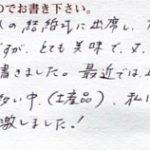 のでお書き下さい。
の結婚式に出席し、
ですが、とても美味で、又、
書きました。最近では、
多い中、(土産品)、私に
激しました!